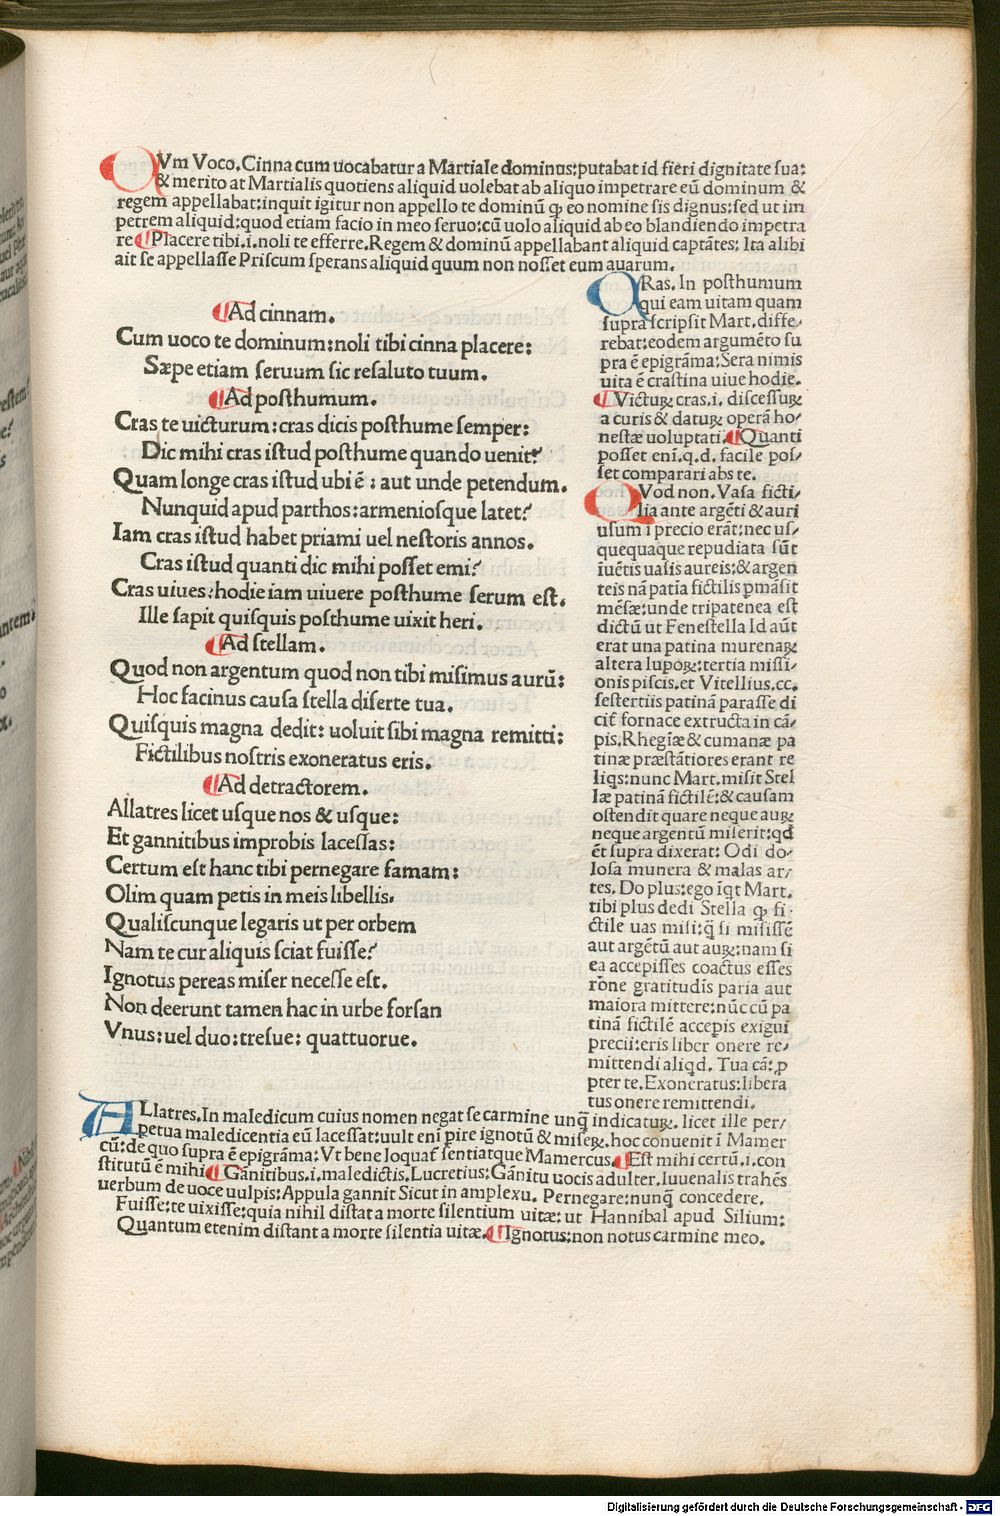 QVm Voco.Cinna cum uocabatur a Martiale dominus:putabat id fieri dignitate ſua:
& merito at Martialis quotiens aliquid uolebat ab aliquo impetrare eū dominum &
regem appellabat:inquit igitur non appello te dominū ꝙ eo nomine ſis dignus:ſed ut im
petrem aliquid:quod etiam facio in meo ſeruo:cū uolo aliquid ab eo blandiendo impetra
re ¶Placere tibi.i.noli te efferre.Regem & dominū appellabant aliquid captātes: Ita alibi
ait ſe appellaſſe Priſcum ſperans aliquid quum non noſſet eum auarum.
¶Ad cinnam.
Cum uoco te dominum:noli tibi cinna placere:
Sæpe etiam ſeruum ſic reſaluto tuum.
¶Ad poſthumum.
Cras te uicturum:cras dicis poſthume ſemper:
Dic mihi cras iſtud poſthume quando uenit?
Quam longe cras iſtud ubi ē : aut unde petendum.
Nunquid apud parthos:armenioſque latet?
Iam cras iſtud habet priami uel neſtoris annos.
Cras iſtud quanti dic mihi poſſet emi?
Cras uiues?hodie iam uiuere poſthume ſerum eſt.
Ille ſapit quiſquis poſthume uixit heri.
¶Ad ſtellam.
Quod non argentum quod non tibi miſimus aurū:
Hoc facinus cauſa ſtella diſerte tua.
Quiſquis magna dedit: uoluit ſibi magna remitti:
Fictilibus noſtris exoneratus eris.
¶Ad detractorem.
Allatres licet uſque nos & uſque:
Et gannitibus improbis laceſſas:
Certum eſt hanc tibi pernegare famam:
Olim quam petis in meis libellis.
Qualiſcunque legaris ut per orbem
Nam te cur aliquis ſciat fuiſſe?
Ignotus pereas miſer neceſſe eſt.
Non deerunt tamen hac in urbe forſan
Vnus:uel duo:treſue: quattuorue.
CRas.In poſthumum
qui eam uitam quam
ſupra ſcripſit Mart.diffe-
rebat:eodem argumēto ſu
pra ē epigrāma:Sera nimis
uita ē craſtina uiue hodie.
¶Victurꝰ cras.i. diſceſſuꝝ
a curis & datuꝝ operā ho-
neſtæ uoluptati.¶Quanti
poſſet eni.q.d. facile poſ-
ſet comparari abs te.
QVod non.Vaſa ficti-
lia ante argēti & auri
uſum ī precio erāt:nec uſ-
quequaque repudiata ſūt
īuētis uaſis aureis:& argen
teis nā patīa fictilis pmāſit
mēſæ:unde tripatenea eſt
dictū ut Feneſtella Id aūt
erat una patina murenaꝝ
altera lupoꝝ:tertia miſſi-
onis piſcis.et Vitellius.cc.
ſeſtertiis patinā paraſſe di
cit̄ fornace extructa in cā-
pis.Rhegiæ & cumanæ pa
tinæ præſtātiores erant re
liqs:nunc Mart.miſit Stel
læ patinā fictilē:& cauſam
oſtendit quare neque auꝝ
neque argentū miſerit:qd
ēt ſupra dixerat: Odi do-
loſa munera & malas ar-
tes. Do plus:ego iqt Mart.
tibi plus dedi Stella ꝙ fi-
ctile uas miſi:q̄ ſi miſiſſē
aut argētū aut auꝝ:nam ſi
ea accepiſſes coactus eſſes
rōne gratitudīs paria aut
maiora mittere:nūc cū pa
tinā fictilē accepis exigui
precii:eris liber onere re-
mittendi aliqd. Tua cā: ꝓ
pter te.Exoneratus:libera
tus onere remittendi.
ALlatres.In maledicum cuius nomen negat ſe carmine unq̄ indicatuꝝ. licet ille per-
petua maledicentia eū laceſſat:uult eni pire ignotū & miſeꝝ.hoc conuenit ī Mamer
cū:de quo ſupra ē epigrāma:Vt bene loquat̄ ſentiatque Mamercus.¶Eſt mihi certū.i.con
ſtitutū ē mihi ¶Gānitibus.i.maledictis.Lucretius:Gānitu uocis adulter.Iuuenalis trahēs
uerbum de uoce uulpis:Appula gannit Sicut in amplexu. Pernegare:nunq̄ concedere.
Fuiſſe:te uixiſſe:quia nihil diſtat a morte ſilentium uitæ: ut Hannibal apud Silium:
Quantum etenim diſtant a morte ſilentia uitæ.¶Ignotus:non notus carmine meo.
Digitalisierung gefördert durch die Deutsche Forschungsgemeinschaft - DFG